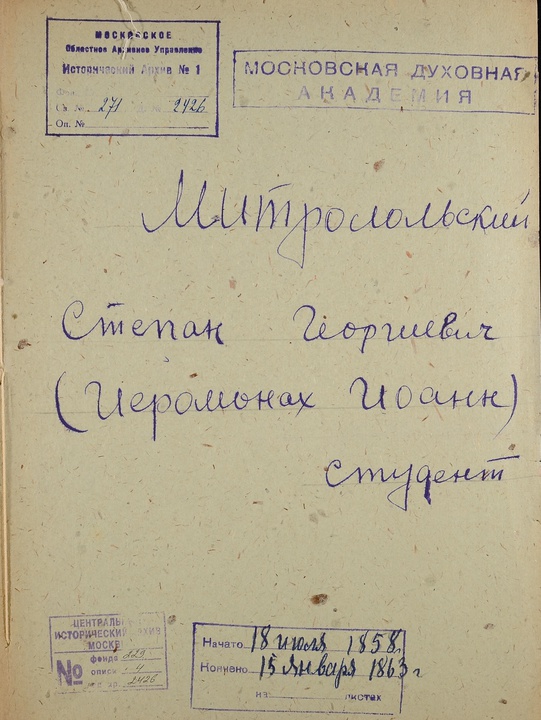 МОСКОВСКОЕ
Областное Архивное Управление
Исторический Архив № 1
Св. № 271 № 2426
Оп. №
МОСКОВСКАЯ ДУХОВНАЯ
АКАДЕМИЯ
Митропольский
Степан Георгиевич
(Иеромонах Иоанн)
студент
ЦЕНТРАЛЬН
ИСТОРИЧЕСКИЙ АРХИВ
МОСКВ
фонд 229
№ опись 4
ед. хр. 2426
Начато 18 июля 1858
Кончено 15 января 1863 г
на листах